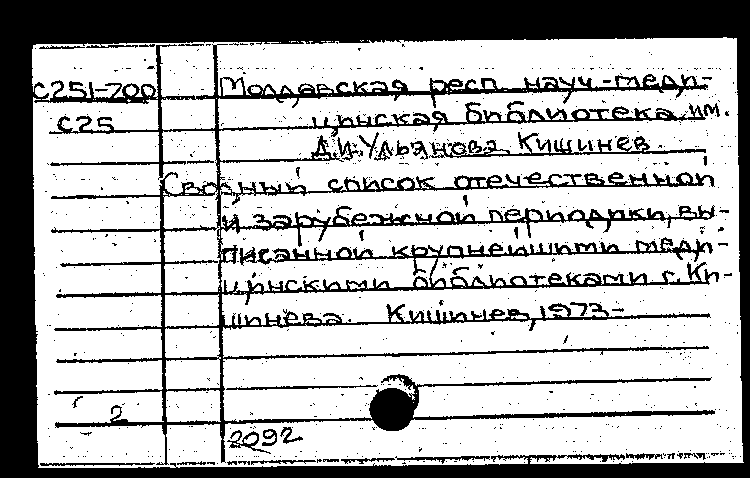 С251-700 Молдавская респ. науч.-меди-
С25 цинская библиотека им.
Д.И.Ульянова. Кишинев.
Сводный список отечественной
и зарубежной периодики, вы-
писанной крупнейшими меди-
цинскими библиотеками г. Ки-
шинева. Кишинев, 1973-
2
2092